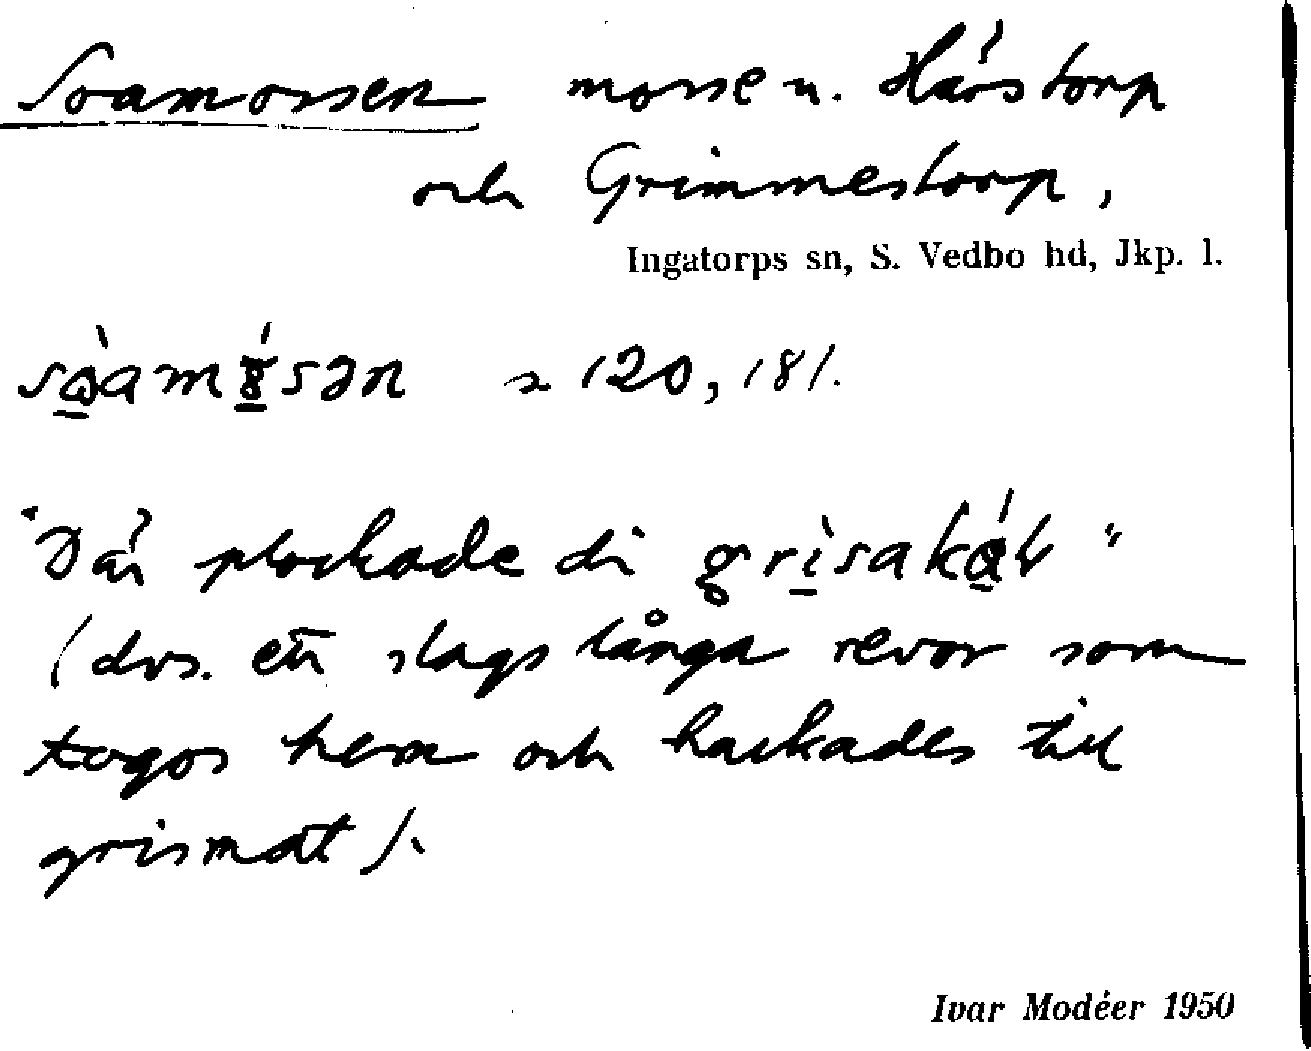 Soamossen mosse u. Hårstorp
och Grimmestorp,
Ingatorps sn, S. Vedbo hd, Jkp. l.
120, 181.
"Där plockade di
(dvs. ett slags långa revor som
togos hem och hackades till
grismat).
Ivar Modéer 1950